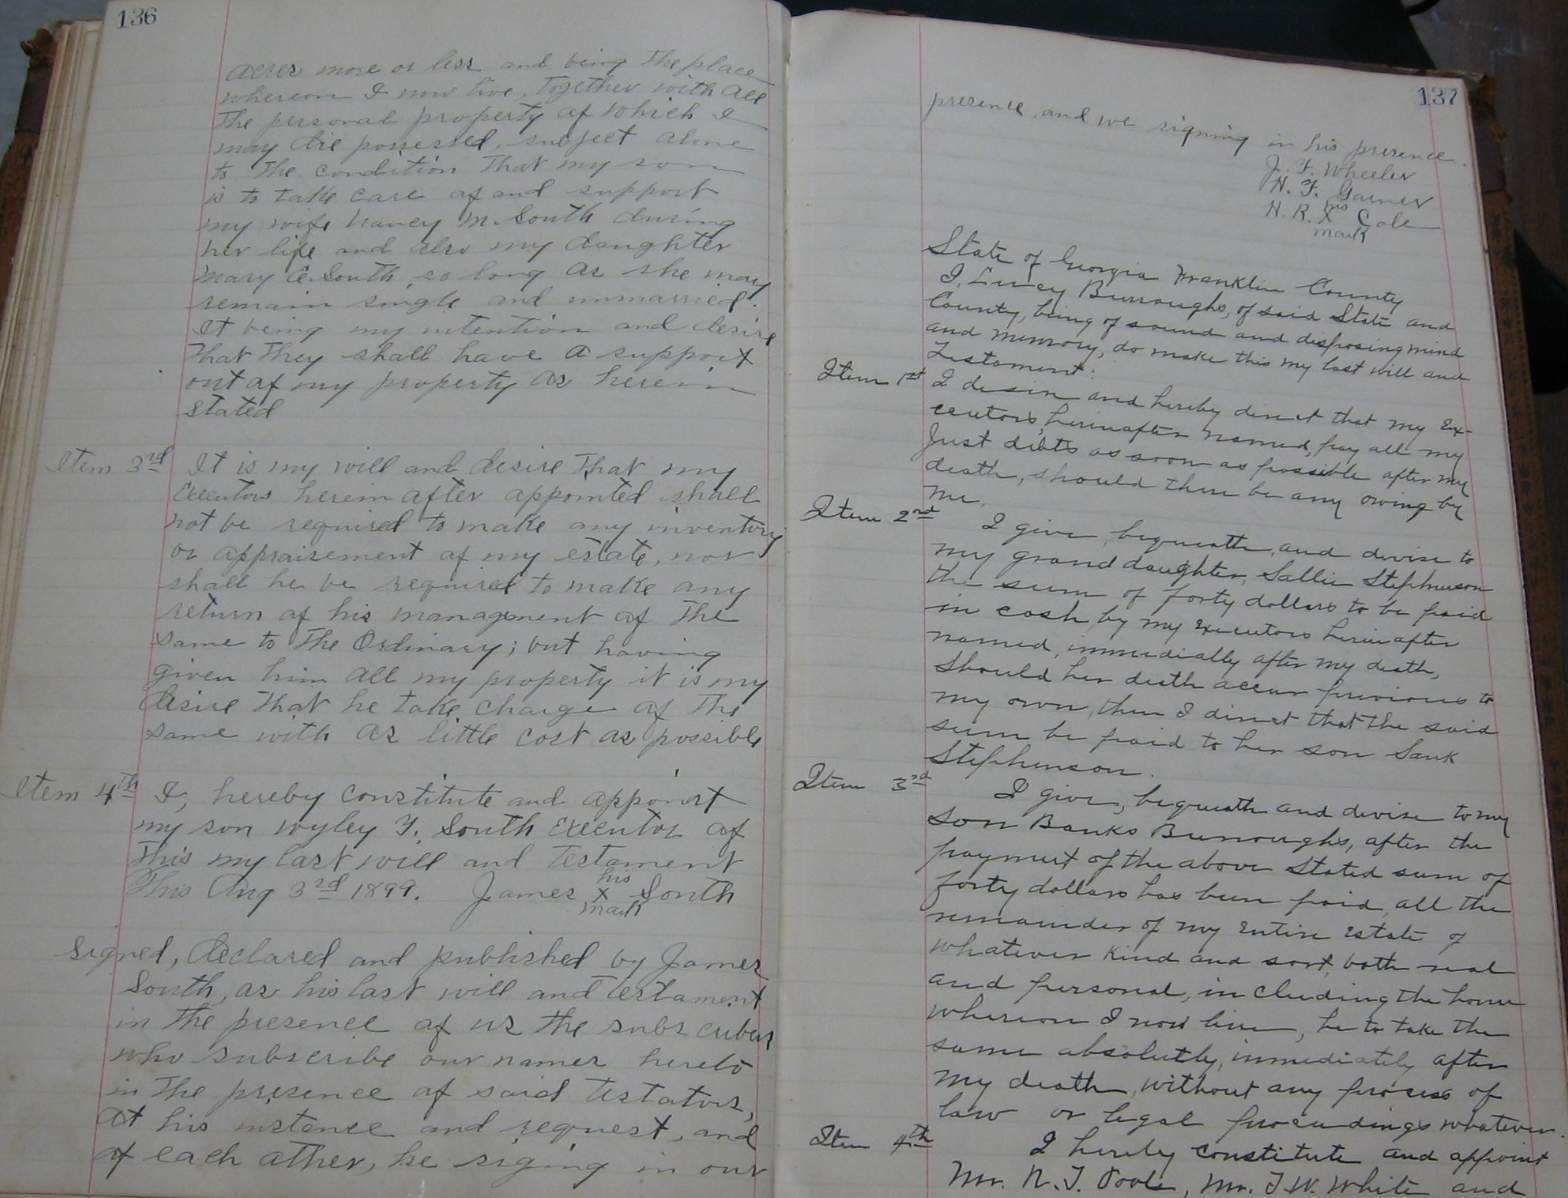 136
acres more or less and being the place
whereon I now live, together with all
the personal property of which I
may die possessed, subject alone
to the condition that my son
is to take care of and support
my wife Nancy M. South during
her life and also my daughter
Mary C. South, so long as she may
remain single and unmarried
It being my intention and desire
that they shall have a support
out of my property as herein
stated
Item 3rd It is my will and desire that my
Executor herein after appointed shall
not be required to make any inventory
or appraisement of my estate, nor
shall he be required to make any
return of his management of the
same to the Ordinary; but having
given him all my property it is my
desire that he take charge of the
same with as little cost as possible
Item 4th I, hereby constitute and appoint
my son Wyley F. South executor of
this my last will and testament
This Aug 3rd 1899. James his x mark South
Signed, declared and published by James
South, as his last will and testament
in the presence of us the subscribers
who subscribe our names hereto
in the presence of said testator,
at his instance and request, and
of each other, he siging in our
137
presence, and we signing in his presence.
J. F. Wheeler
H. F. Garner
H. R. his x mark Cole
State of Georgia Franklin County
I, Lucy Burroughs, of said State and
County, being of sound and disposing mind
and memory, do make this my last will and
Testament.
Item 1st I desire and hereby direct that my Ex-
ecutors hereinafter named, pay all my
just debts as soon as possible after my
death, should there be any owing by
me.
Item 2nd I give, bequeath, and devise to
my grand daughter, Sallie Stephenson
the sum of forty dollars to be paid
in cash by my executors hereinafter
named, immediately after my death,
Should her death occur previous to
my own, then I direct that the said
sum be paid to her son Sank
Stephenson.
Item 3rd I give, bequeath and devise to my
son Banks Burroughs, after the
payment of the above stated sum of
forty dollars has been paid, all the
remainder of my entire estate of
whatever kind and sort, both real
and personal, including the home
whereon I now live, he to take the
same absolutely, immediately after
my death, without any process of
law or legal proceedings whatever.
Item 4th I hereby constitute and appoint
Mr. N. T. Pool, Mr. T. W. White and